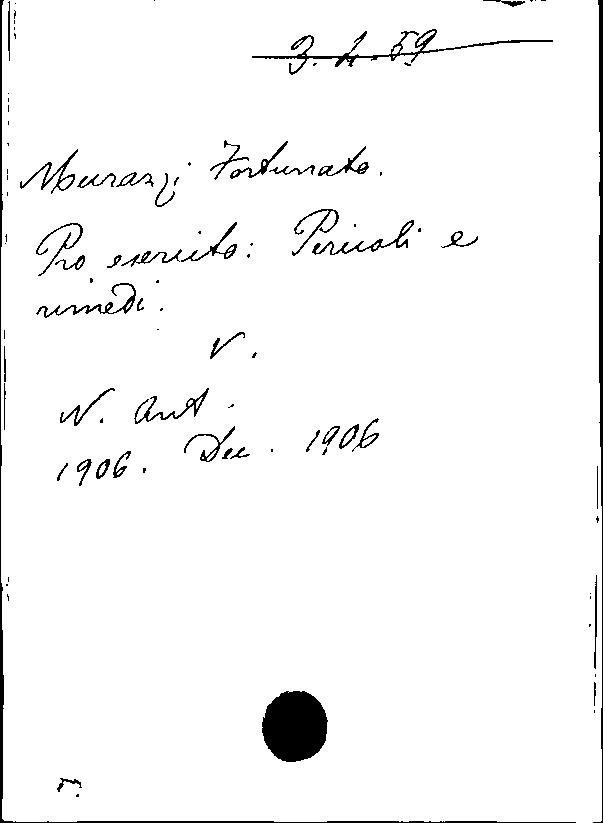 3. 4. 59
Marazzi Fortunato.
Pro esercito: Pericoli e
rimedi.
V.
N. Ant.
1906. Dec. 1906